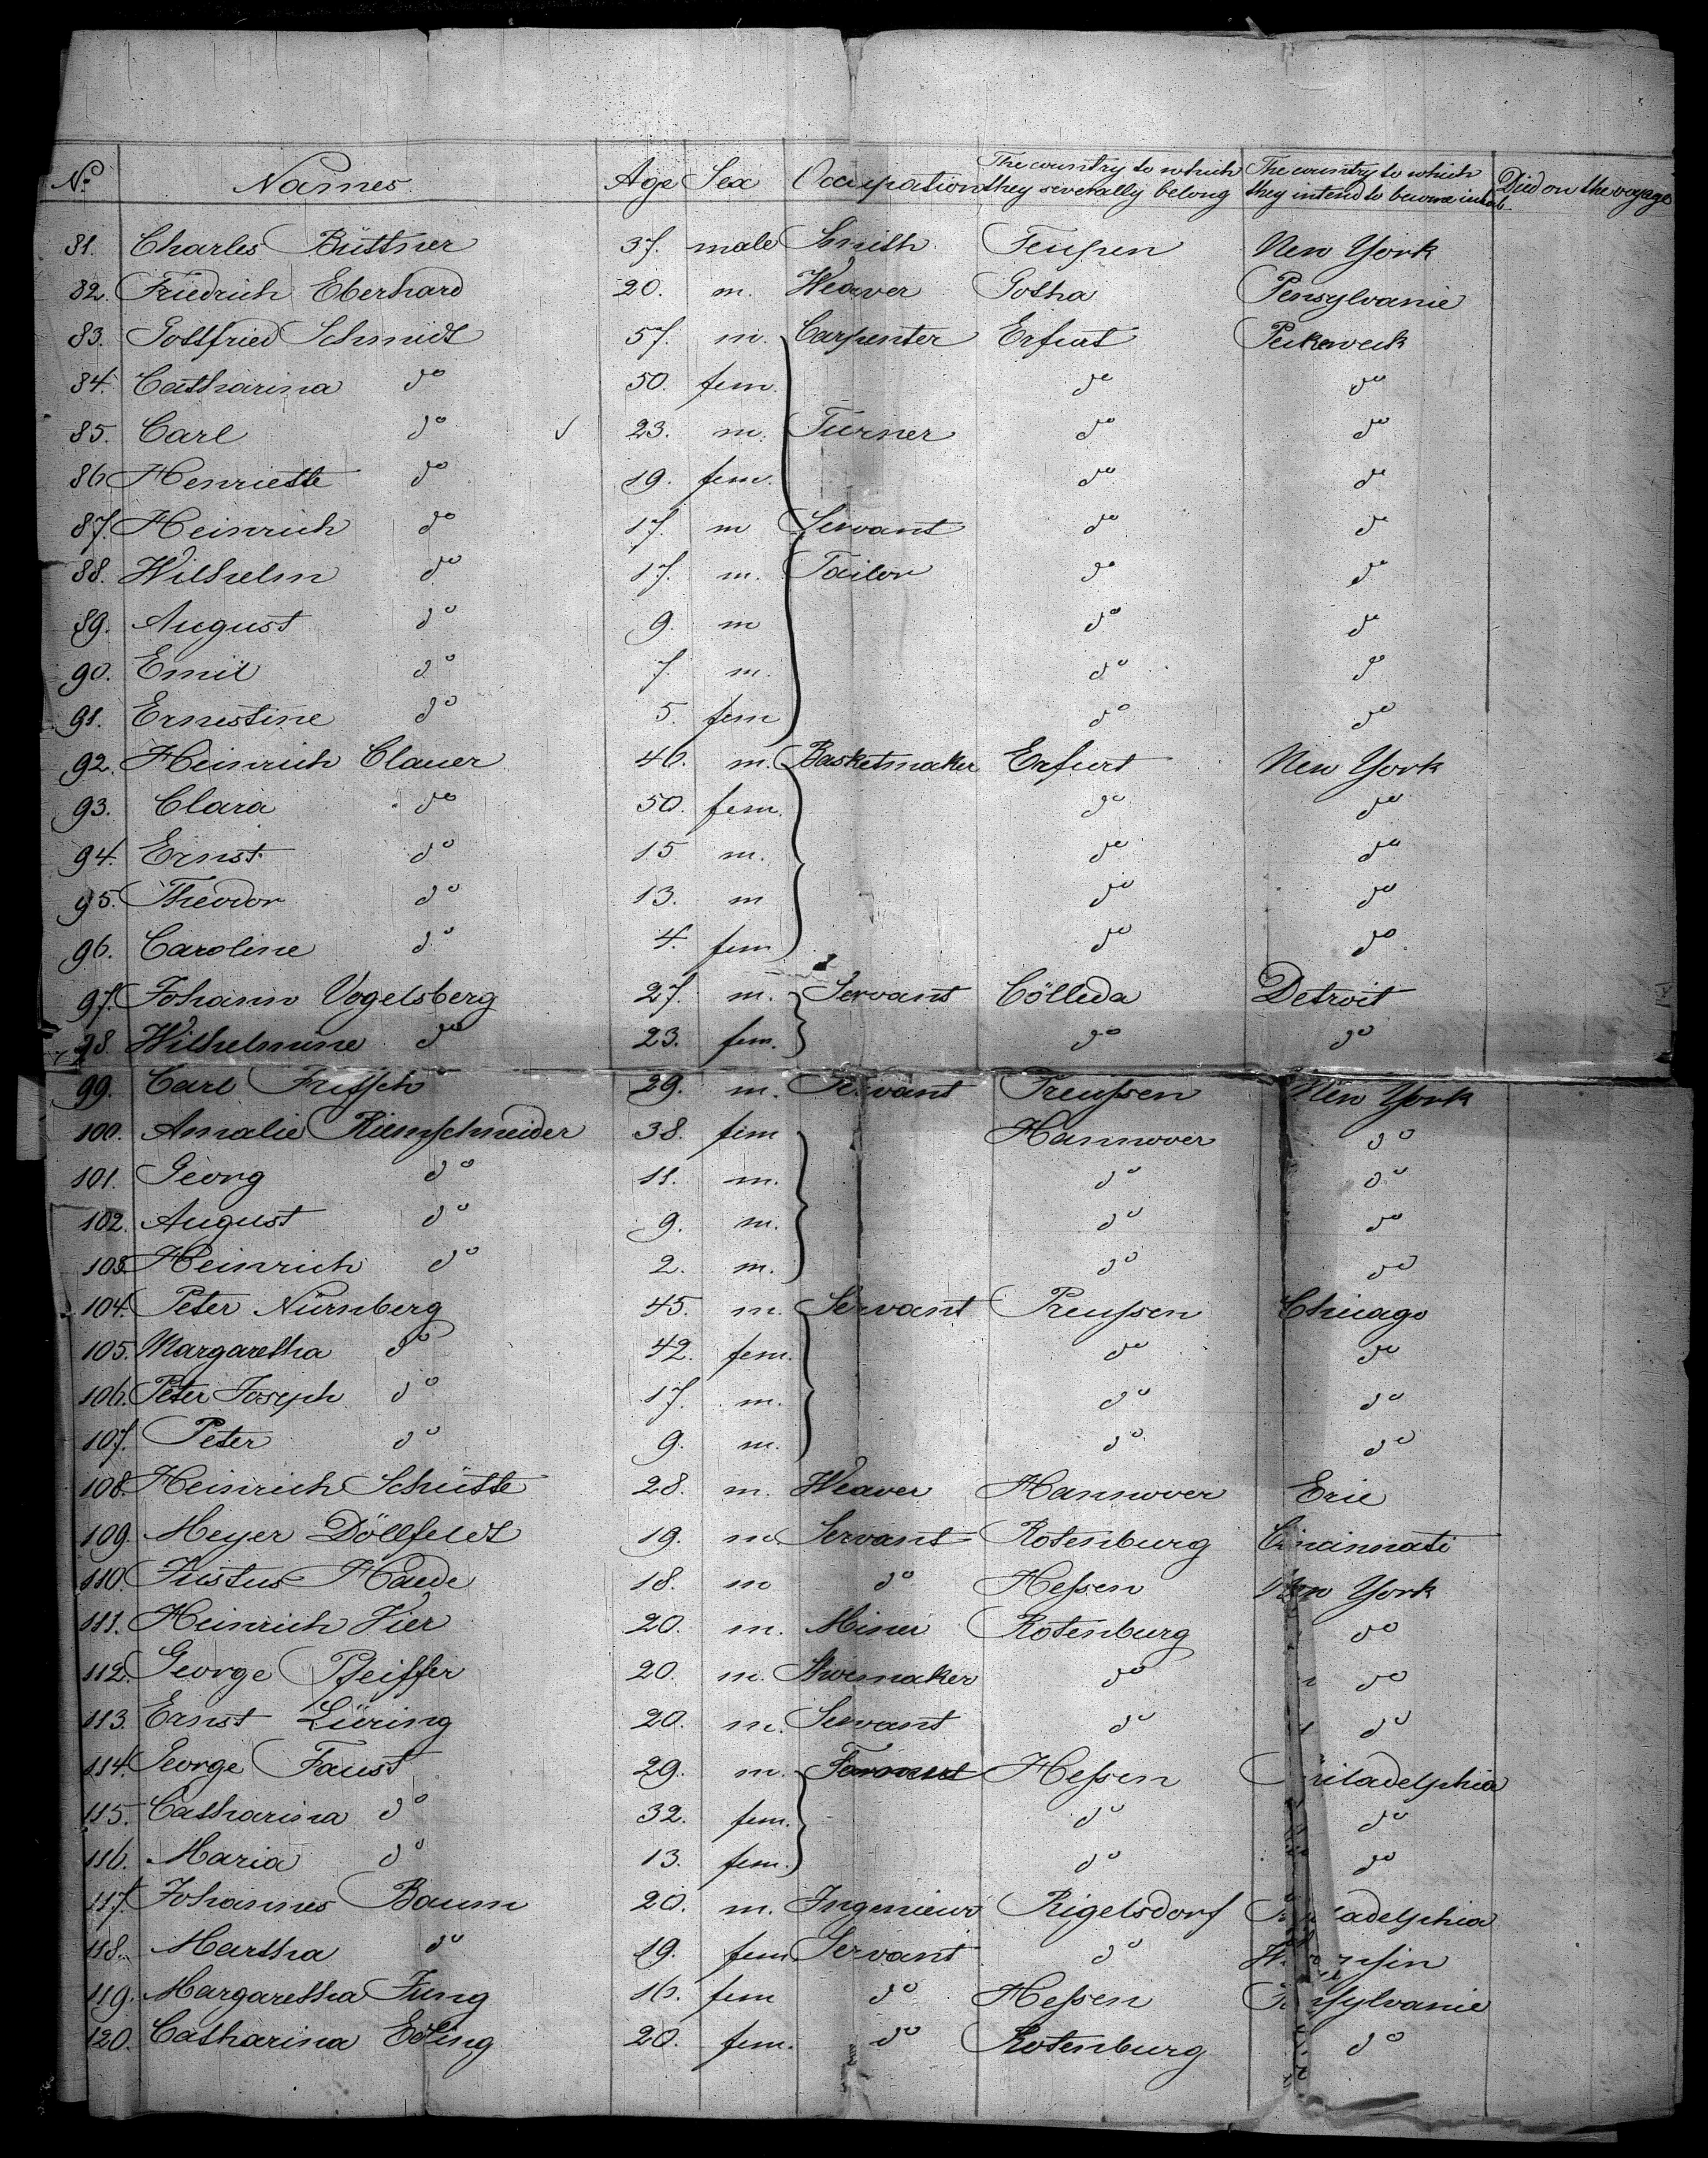 No. Names Age Sex Occupation The country to which they severally belong The country to which they intend to become inhab. Died on the voyage
81. Charles Büttner 37. male Smith New York
82. Friedrich Eberhard 20. m. Weaver Gotha Pensylvanie
83. Gottfried Schmidt 57. m. Carpenter Erfurt
84. Catharina do 50. fem. do do
85. Carl do 23. m. Turner do do
86 Henriette do 19. fem. do do
87. Heinrich do 17. m Servant do do
88. Wilhelm do 17. m. Tailor do do
89. August do 9. m do do
90. Emil do 7. m. do do
91. Ernestine do 5. fem do do
92. Heinrich Clauer 40. m. Basketmaker Erfurt New York
93. Clara do 50. fem. do do
94. Ernst do 15 m. do do
95. Theodor do 13. m do do
96. Caroline do 4. fem do do
97. Johann Vogelsberg 27. m. Servant Cölleda Detroit
98 Wilhelmine do 23. fem. do do
99. Carl Fritsch 29. m. Servant Preußen New York
100. Amalie Riemschneider 38. fem Hannover do
101. Georg do 11. m. do do
102. August do 9. m. do do
103. Heinrich do 2. m. do do
104. Peter Nürnberg 45. m. Servant Preußen Chicago
105. Margaretha do 42. fem. do do
106. Peter Joseph do 17. m. do do
107. Peter do 9. m. do do
108. Heinrich Schütte 28. m. Weaver Hannover Erie
109. Meyer Döllfeldt 19. m Servant Rotenburg Cincinnati
110. Justus Haede 18. m do Heßen New York
111. Heinrich Vier 20. m. Miner Rotenburg do
112. George Pfeiffer 20. m. Shoemaker do do
113. Ernst Lüring 20. m. Servant do do
114. George Faust 29. m. Heßen Philadelphia
115. Catharina do 32. fem. do do
116. Maria do 13. fem. do do
117. Johannes Baum 20. m. Ingenieur Rigelsdorf Philadelphia
118. Martha do 19. fem Servant do
119. Margaretha Jung 16. fem do Heßen
120. Catharina Eding 20. fem. do Rotenburg do